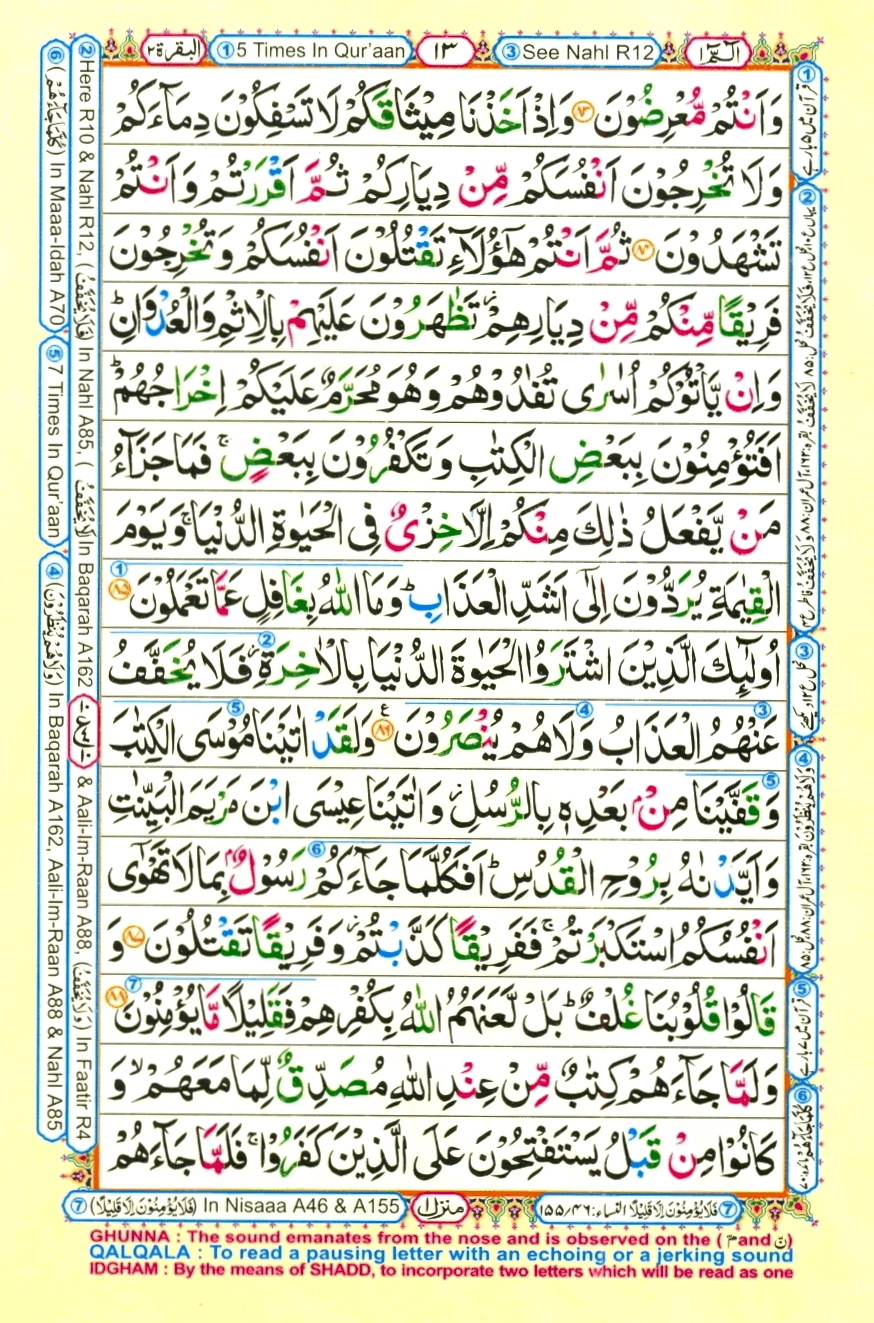 البقرة ٢
① 5 Times In Qur'aan
١٣
③ See Nahl R12
الٓمّٓ ١
وَاَنْتُمْ مُّعْرِضُوْنَ ﴿٨٣﴾ وَاِذْ اَخَذْنَا مِيْثَاقَكُمْ لَا تَسْفِكُوْنَ دِمَآءَكُمْ
وَلَا تُخْرِجُوْنَ اَنْفُسَكُمْ مِّنْ دِيَارِكُمْ ثُمَّ اَقْرَرْتُمْ وَاَنْتُمْ
تَشْهَدُوْنَ ﴿٨٤﴾ ثُمَّ اَنْتُمْ هٰٓؤُلَآءِ تَقْتُلُوْنَ اَنْفُسَكُمْ وَتُخْرِجُوْنَ
فَرِيْقًا مِّنْكُمْ مِّنْ دِيَارِهِمْ ۫ تَظٰهَرُوْنَ عَلَيْهِمْ بِالْاِثْمِ وَالْعُدْوَانِ ؕ
وَاِنْ يَّاْتُوْكُمْ اُسٰرٰى تُفٰدُوْهُمْ وَهُوَ مُحَرَّمٌ عَلَيْكُمْ اِخْرَاجُهُمْ ؕ
اَفَتُؤْمِنُوْنَ بِبَعْضِ الْكِتٰبِ وَتَكْفُرُوْنَ بِبَعْضٍ ۚ فَمَا جَزَآءُ
مَنْ يَّفْعَلُ ذٰلِكَ مِنْكُمْ اِلَّا خِزْىٌ فِى الْحَيٰوةِ الدُّنْيَا ۚ وَيَوْمَ
الْقِيٰمَةِ يُرَدُّوْنَ اِلٰٓى اَشَدِّ الْعَذَابِ ؕ وَمَا اللّٰهُ بِغَافِلٍ عَمَّا تَعْمَلُوْنَ ﴿٨٥﴾
اُولٰٓئِكَ الَّذِيْنَ اشْتَرَوُا الْحَيٰوةَ الدُّنْيَا بِالْاٰخِرَةِ ؗ فَلَا يُخَفَّفُ
عَنْهُمُ الْعَذَابُ وَلَا هُمْ يُنْصَرُوْنَ ﴿٨٦﴾ ع وَلَقَدْ اٰتَيْنَا مُوْسَى الْكِتٰبَ
وَقَفَّيْنَا مِنْۢ بَعْدِهٖ بِالرُّسُلِ ؗ وَاٰتَيْنَا عِيْسَى ابْنَ مَرْيَمَ الْبَيِّنٰتِ
وَاَيَّدْنٰهُ بِرُوْحِ الْقُدُسِ ؕ اَفَكُلَّمَا جَآءَكُمْ رَسُوْلٌۢ بِمَا لَا تَهْوٰٓى
اَنْفُسُكُمُ اسْتَكْبَرْتُمْ ۚ فَفَرِيْقًا كَذَّبْتُمْ ؗ وَفَرِيْقًا تَقْتُلُوْنَ ﴿٨٧﴾ وَ
قَالُوْا قُلُوْبُنَا غُلْفٌ ؕ بَلْ لَّعَنَهُمُ اللّٰهُ بِكُفْرِهِمْ فَقَلِيْلًا مَّا يُؤْمِنُوْنَ ﴿٨٨﴾
وَلَمَّا جَآءَهُمْ كِتٰبٌ مِّنْ عِنْدِ اللّٰهِ مُصَدِّقٌ لِّمَا مَعَهُمْ ۙ وَ
كَانُوْا مِنْ قَبْلُ يَسْتَفْتِحُوْنَ عَلَى الَّذِيْنَ كَفَرُوْا ۚ فَلَمَّا جَآءَهُمْ
② Here R10 & Nahl R12, (فَلَا يُخَفَّفُ) In Nahl A85, (لَا يُخَفَّفُ) In Baqarah A162
& Aali-Im-Raan A88, (وَلَا يُخَفَّفُ) In Faatir R4
⑥ (كُلَّمَا جَآءَهُمْ) In Maaa-Idah A70
⑤ 7 Times In Qur'aan
④ (وَلَا هُمْ يُنْظَرُوْنَ) In Baqarah A162, Aali-Im-Raan A88 & Nahl A85
① قرآن میں ۵ بار ہے
⑤ قرآن میں ۷ بار ہے
⑦ (فَلَا يُؤْمِنُوْنَ اِلَّا قَلِيْلًا) In Nisaaa A46 & A155
منزل ١
⑦ فَلَا يُؤْمِنُوْنَ اِلَّا قَلِيْلًا النساء: ٤٦/١٥٥
GHUNNA : The sound emanates from the nose and is observed on the ( مّ and نّ )
QALQALA : To read a pausing letter with an echoing or a jerking sound
IDGHAM : By the means of SHADD, to incorporate two letters which will be read as one